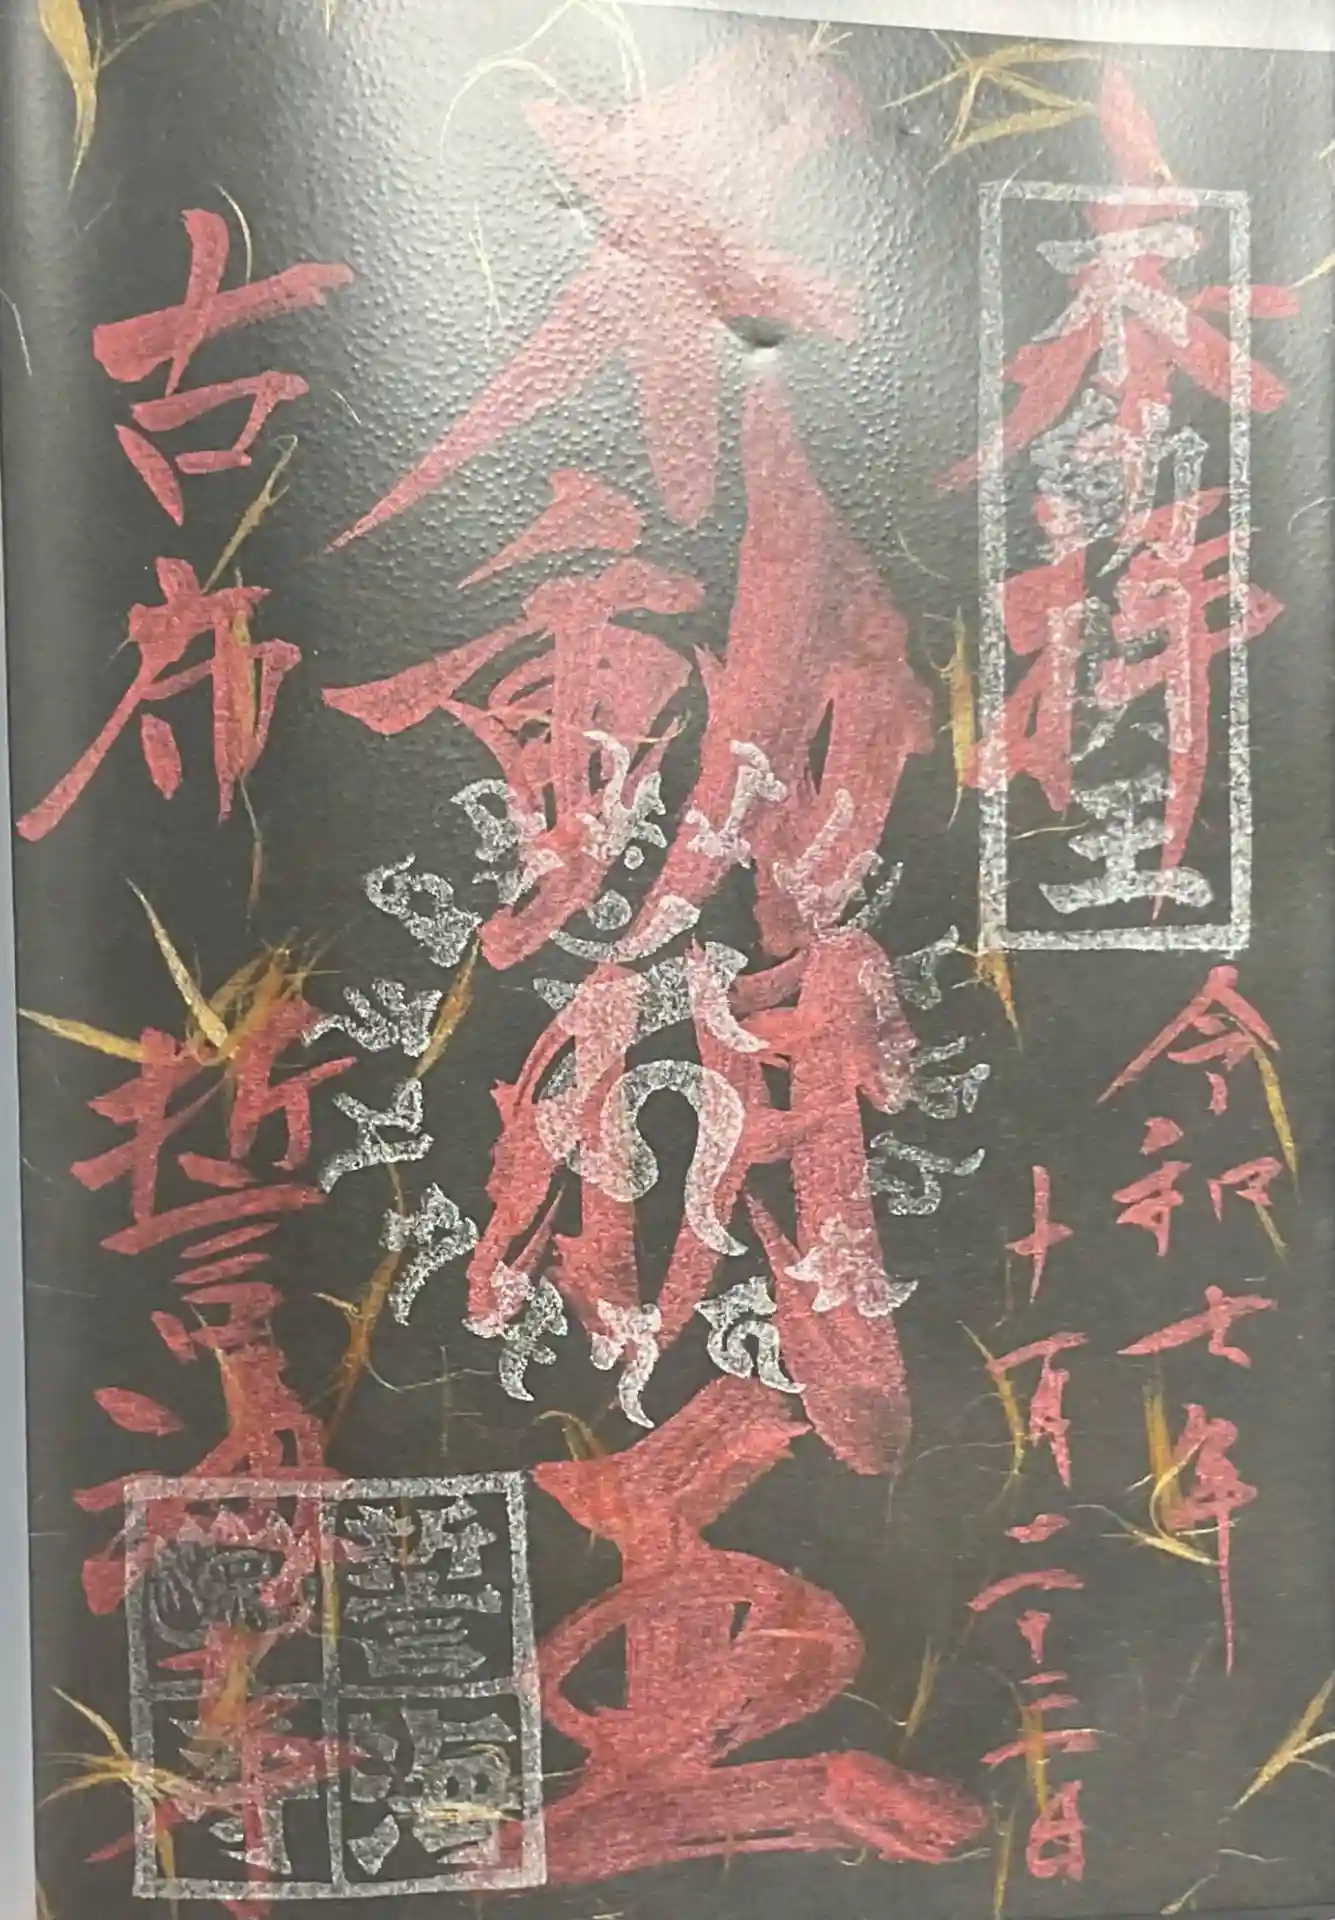 奉拝
不動明王
令和七年
十一月二十二日
不動明王
古布
誓海寺
誓海禅寺